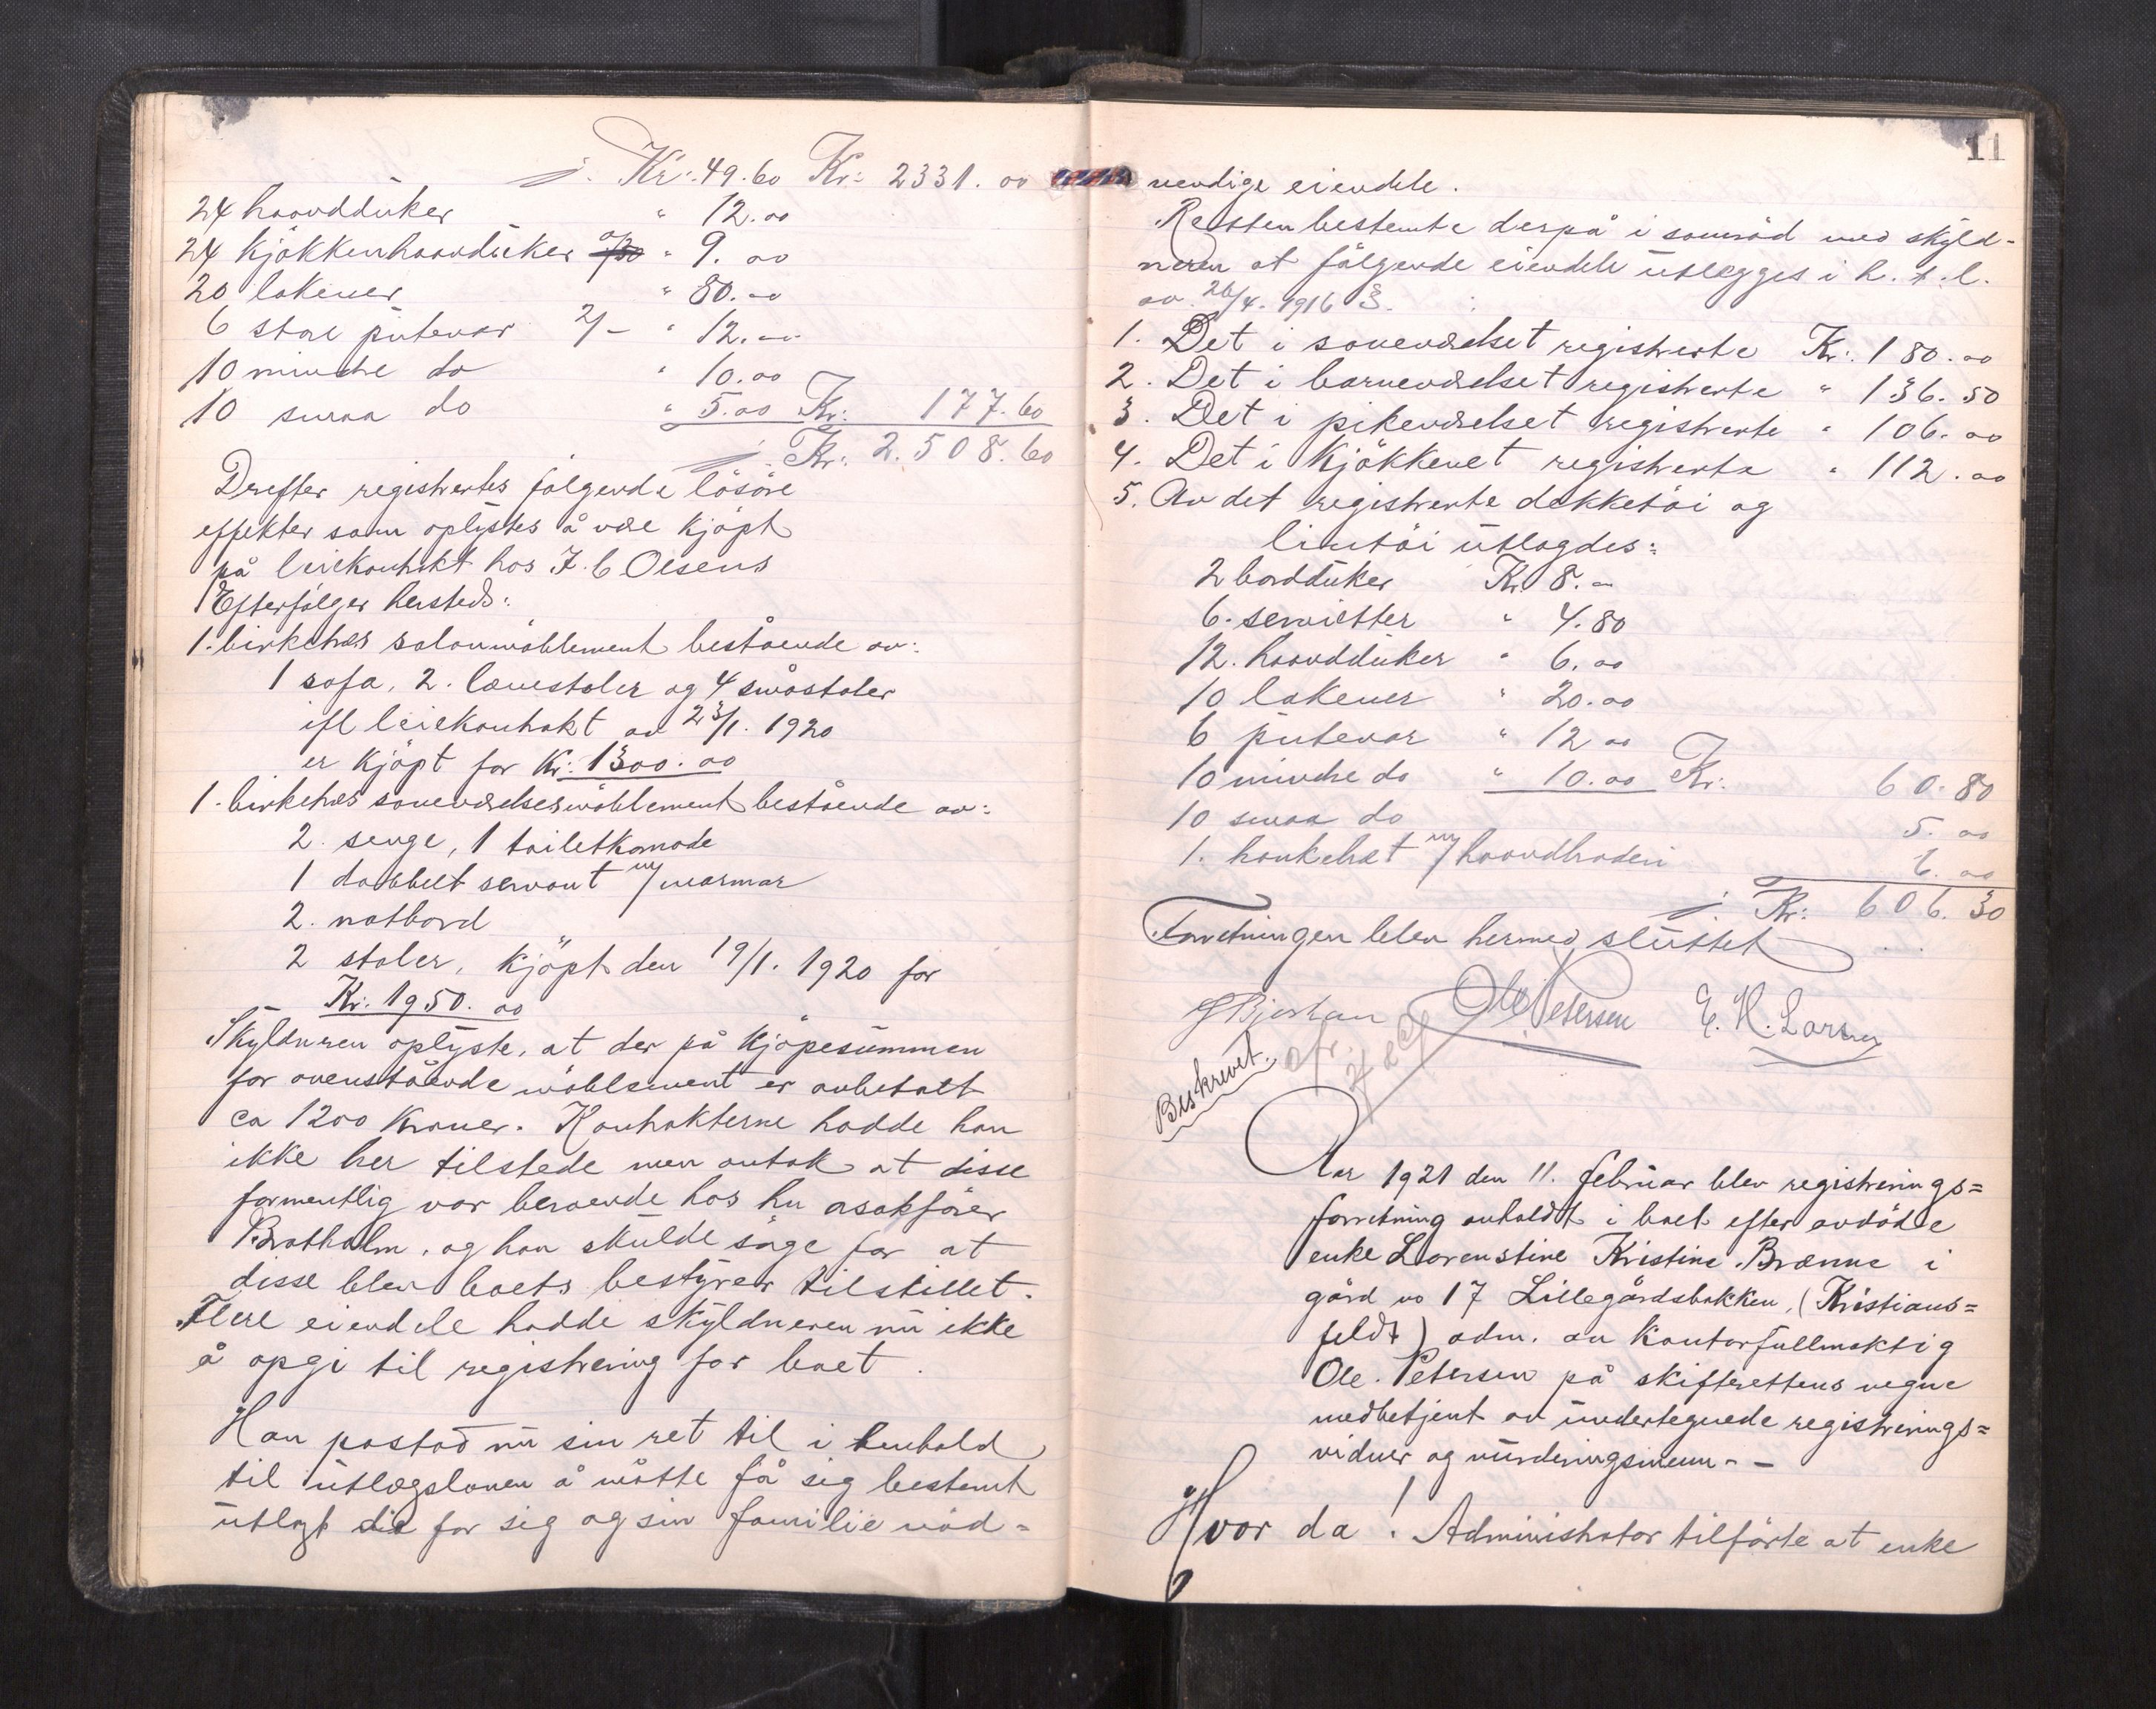 Kr: 49.60 Kr: 2331.00
24 haandduker " 12.00
24 kjøkkenhaandduker " 9.00
20 lakener " 80.00
6 store putevar 2/- " 12.00
10 mindre do " 10.00
10 smaa do " 5.00 Kr: 177.60
Kr: 2.508.60
Derefter registrertes følgende løsøre
effekter som oplystes å være kjøpt
på leiekontrakt hos J. C Olsens
Efterfølger hersteds:
1. birketræs salonmøblement bestående av:
1 sofa, 2. lænestoler og 4 småstoler
ifl leiekontrakt av 23/1. 1920
er kjøpt for Kr: 1300.00
1. birketræs soveværelsesmøblement bestående av:
2. senge, 1 toiletkomode
1 dobbelt servant m/ marmor
2. natbord
2 stoler, kjøpt den 19/1. 1920 for
Kr: 1950.00
Skyldneren oplyste, at der på kjøpesummen
for ovenstående møblement er avbetalt
ca 1200 kroner. Kontrakterne hadde han
ikke her tilstede men antok at disse
formentlig var beroende hos hr. o.r.sakfører
Bratholm, og han skulde sørge for at
disse blev boets bestyrer tilstillet.
Flere eiendele hadde skyldneren nu ikke
å opgi til registrering for boet.
Han påstod nu sin ret til i henhold
til utlægsloven å måtte få sig bestemt
utlagt de for sig og sin familie nød=
11
vendige eiendele.
Retten bestemte derpå i samråd med skyld-
neren at følgende eiendele utlegges i h. t. l.
av 26/4. 1916 §.
1. Det i soveværelset registrerte Kr: 180.00
2. Det i barneværelset registrerte " 136.50
3. Det i pikeværelset registrerte " 106.00
4. Det i kjøkkenet registrerte " 112.00
5. Av det registrerte dekketøi og
lintøi utlagdes:
2 bordduker Kr 8.-
6. servietter " 4.80
12. haandduker " 6.00
10 lakener " 20.00
6 putevar " 12.00
10 mindre do " 10.00 Kr: 60.80
10 smaa do 5.00
1. hanketræt m/ haandbroderi 6.00
Kr: 606.30
Forretningen blev hermed sluttet
Ole Petersen E. H. Larsen
Beskrevet.
Aar 1921 den 11. februar blev registrerings=
forretning avholdt i boet efter avdøde
enke Lorenstine Kristine Brænne i
gård no 17 Lillegårdsbakken, (Kristians=
feldt) adm. av kontorfullmektig
Ole. Petersen på skifterettens vegne
medbetjent av undertegnede registrerings=
vidner og vurderingsmenn - -
Hvor da! Administrator tilførte at enke